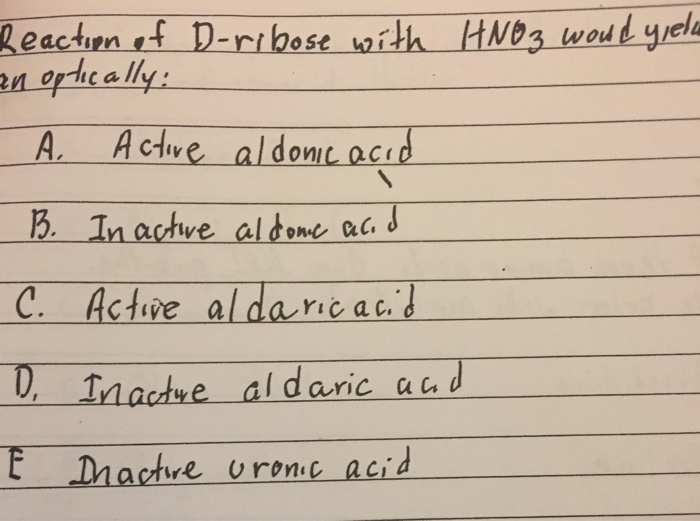 Reaction of D-ribose with HNO3 woud yield
an optically:
A. Active aldonic acid
B. Inactive aldonic acid
C. Active aldaric acid
D. Inactive aldaric acid
E Inactive uronic acid